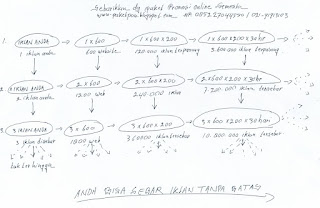 Sebarkan dg paket Promosi online Otomatis
IKLAN ANDA
1 x 600
1 x 600 x 200
1 x 600 x 200 x 30 hr
1 iklan anda
600 website
120.000 iklan terpasang
3.600.000 iklan terpasang
2 IKLAN ANDA
2 x 600
2 x 600 x 200
2 x 600 x 200 x 30 hr
2 iklan anda
1200 web
240.000 iklan
7.200.000 iklan tersebar
3 IKLAN ANDA
3 x 600
3 x 600 x 200
3 x 600 x 200 x 30 hari
3 iklan disebar
1800 web
360000 iklan tersebar
10.800.000 iklan tersebar
tak terhingga
ANDA BISA SEBAR IKLAN TANPA BATAS